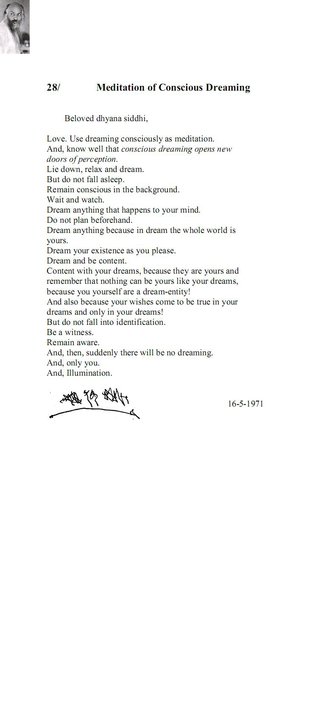 28/ Meditation of Conscious Dreaming
Beloved dhyana siddhi,
Love. Use dreaming consciously as meditation.
And, know well that conscious dreaming opens new
doors of perception.
Lie down, relax and dream.
But do not fall asleep.
Remain conscious in the background.
Wait and watch.
Dream anything that happens to your mind.
Do not plan beforehand.
Dream anything because in dream the whole world is
yours.
Dream your existence as you please.
Dream and be content.
Content with your dreams, because they are yours and
remember that nothing can be yours like your dreams,
because you yourself are a dream-entity!
And also because your wishes come to be true in your
dreams and only in your dreams!
But do not fall into identification.
Be a witness.
Remain aware.
And, then, suddenly there will be no dreaming.
And, only you.
And, Illumination.
16-5-1971